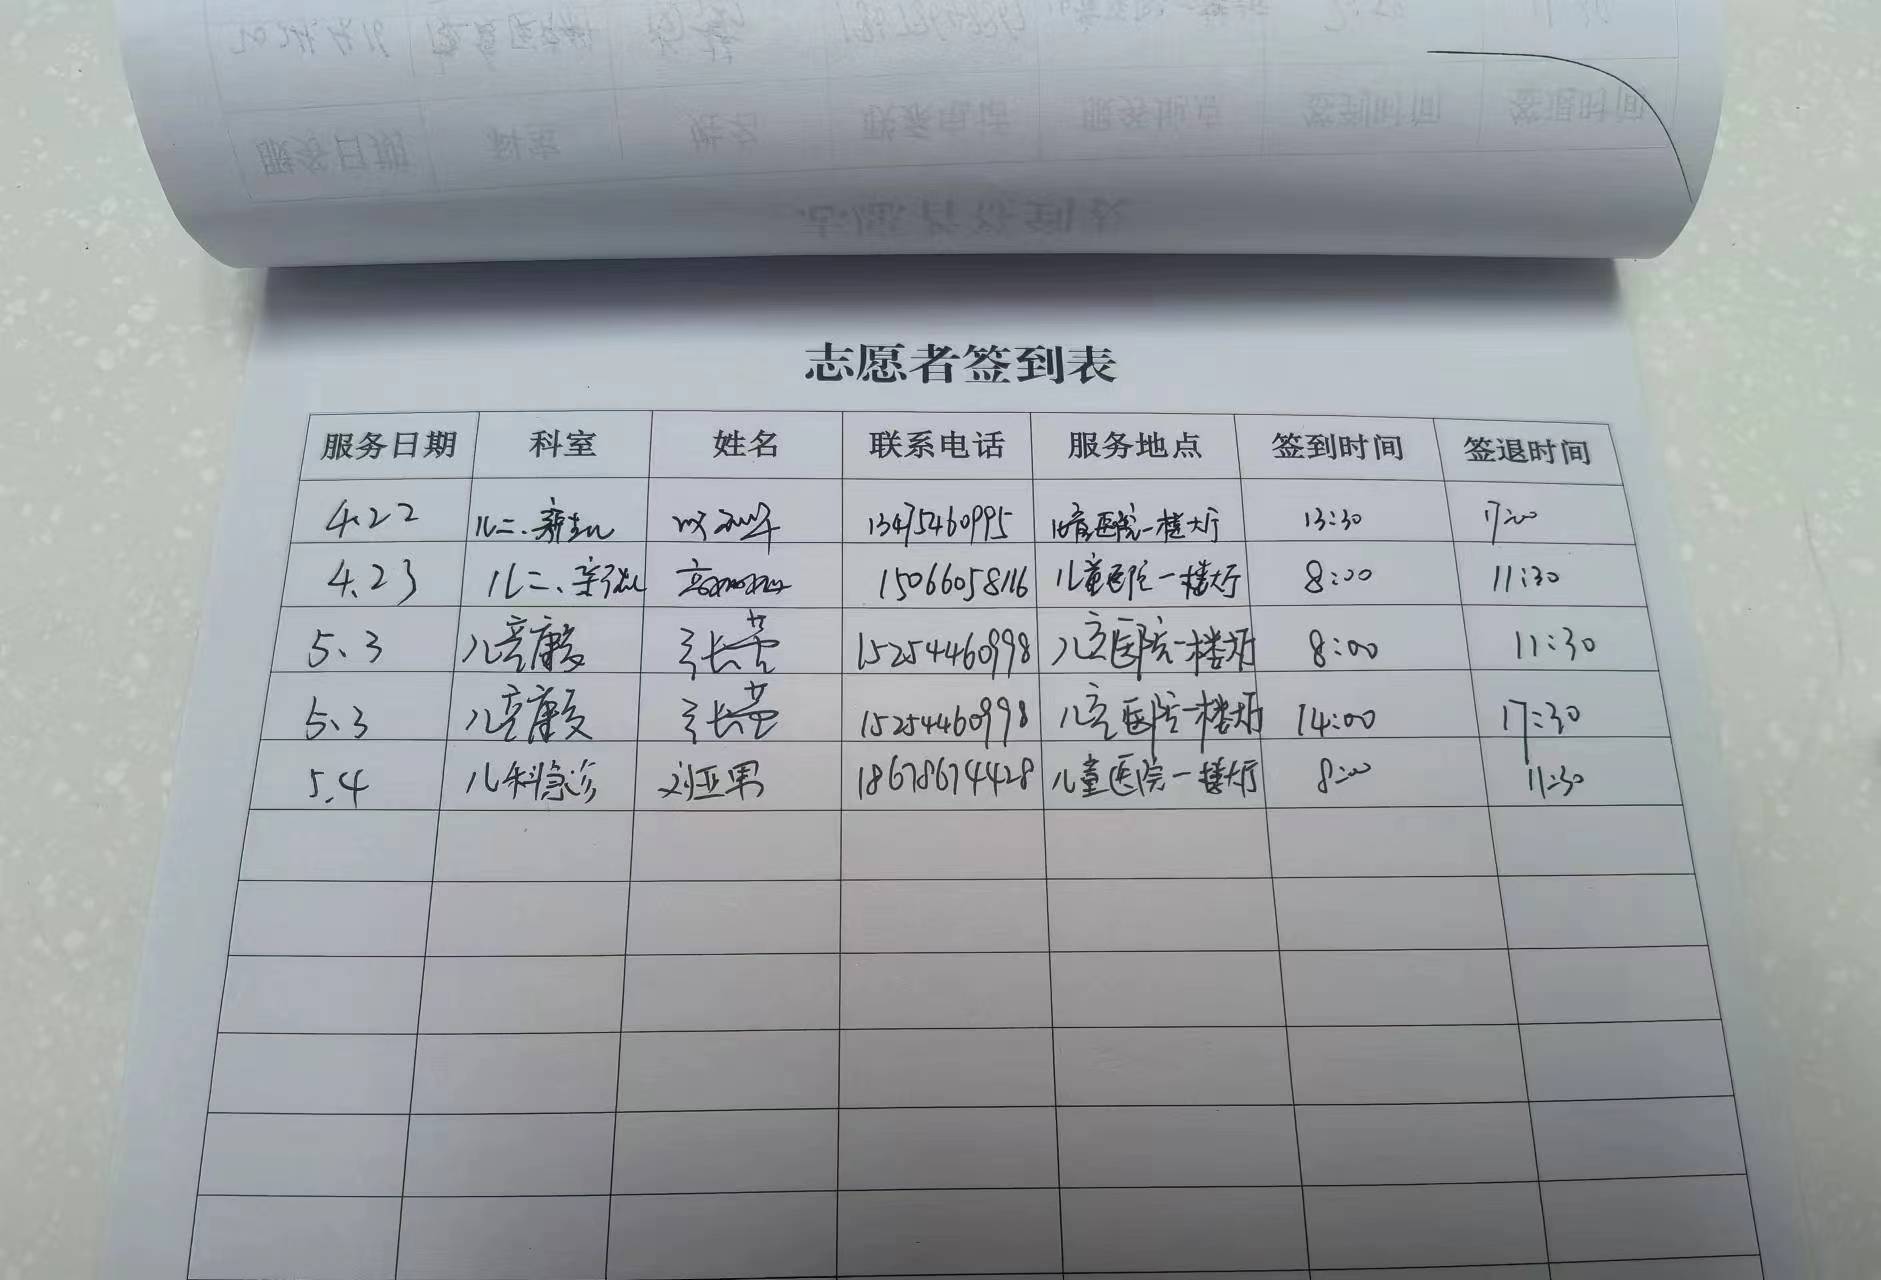 志愿者签到表
服务日期 科室 姓名 联系电话 服务地点 签到时间 签退时间
4.22 儿二、新生儿 13475460995 儿童医院一楼大厅 13:30 17:00
4.23 儿二、新生儿 15066058116 儿童医院一楼大厅 8:00 11:30
5.3 儿童康复 张营 15254460998 儿童医院一楼大厅 8:00 11:30
5.3 儿童康复 张营 15254460998 儿童医院一楼大厅 14:00 17:30
5.4 儿科急诊 刘亚男 18678674428 儿童医院一楼大厅 8:00 11:30